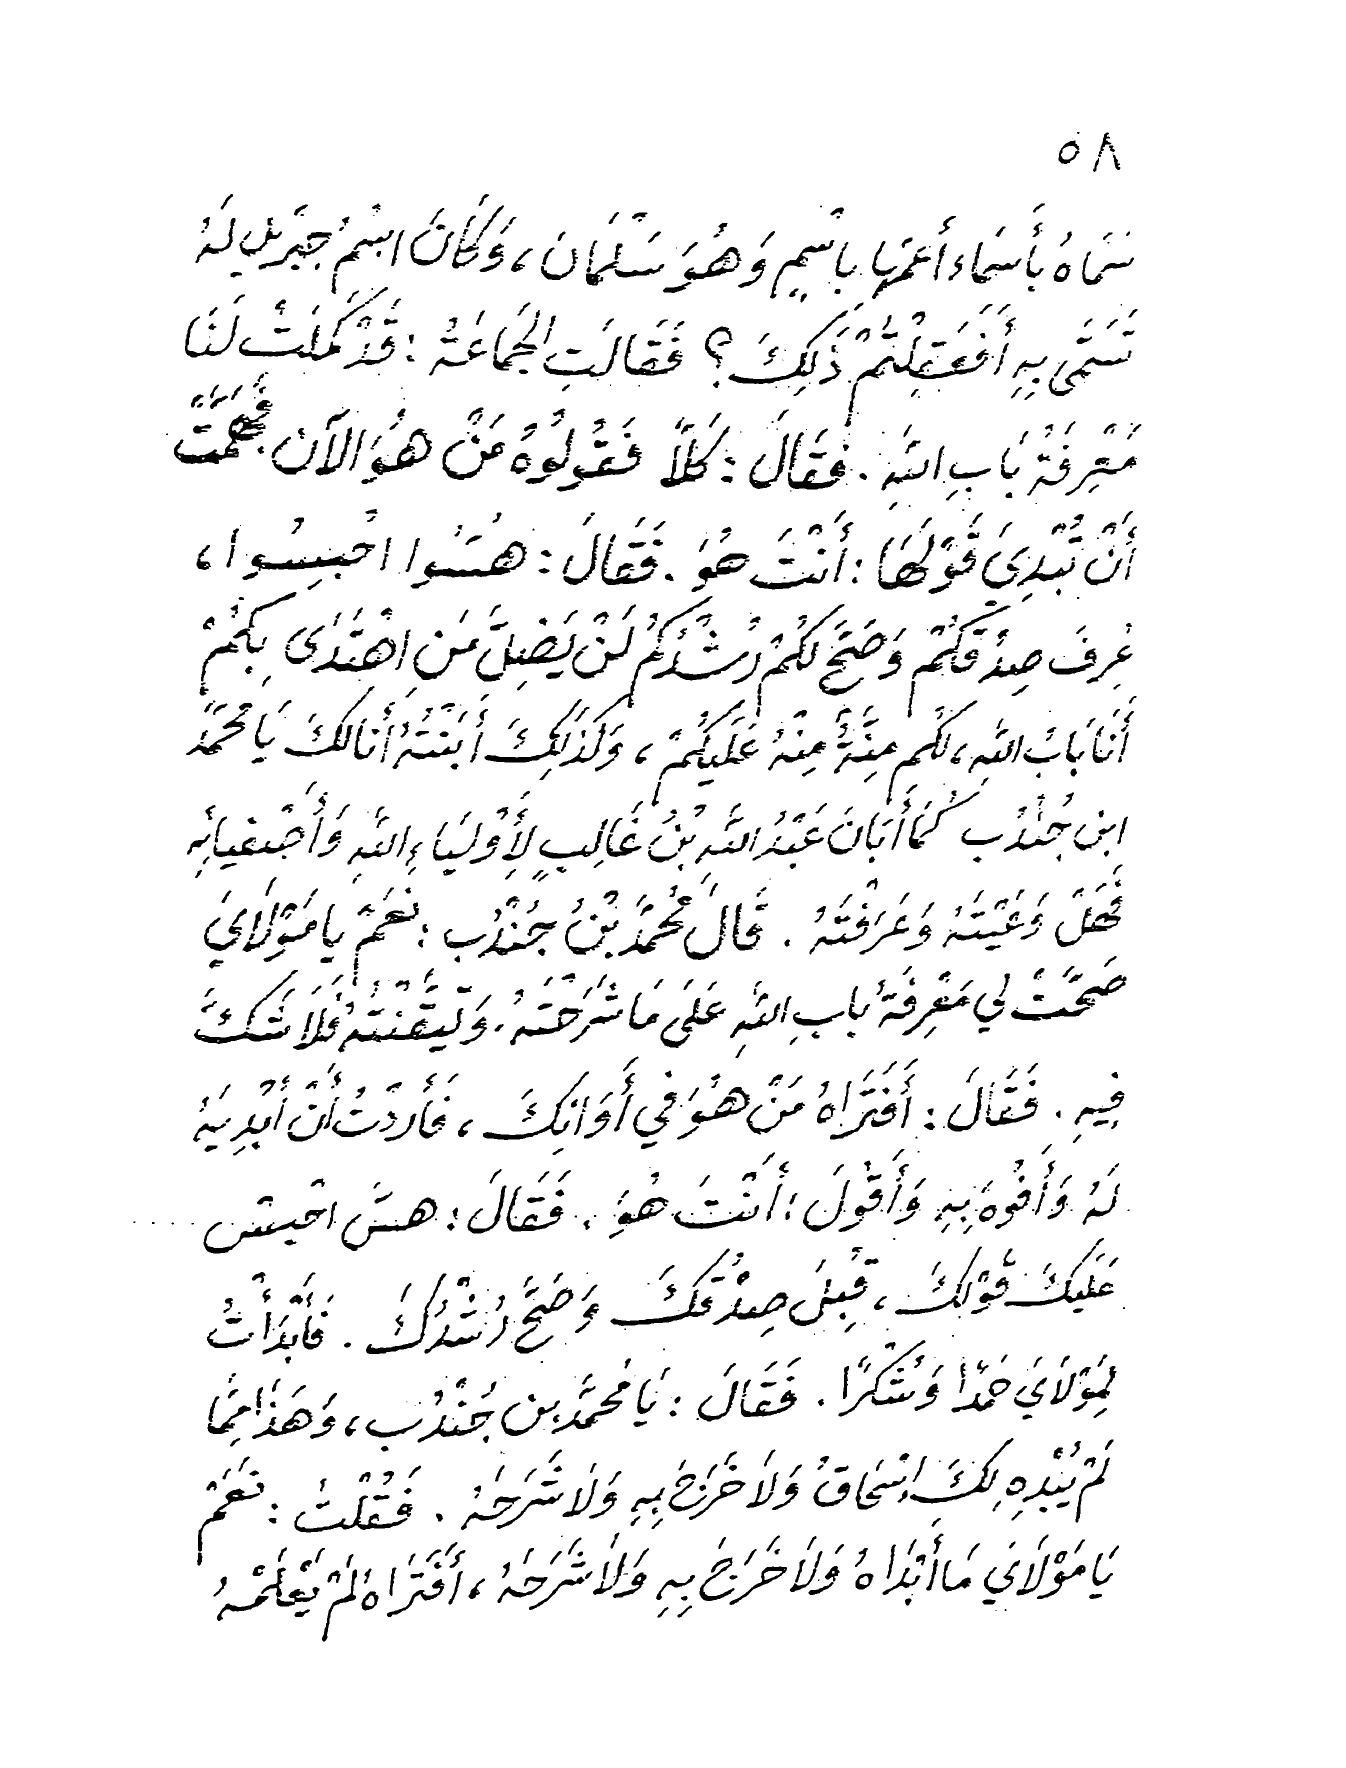 ٥٨
سَمَّاهُ بِأَسْمَاءَ أَعَمُّهَا بِاسْمٍ وَهُوَ سَلْمَانَ، وَكَانَ اسْمُ جِبْرِيلِ لَهُ
تَسَمَّى بِهِ أَفَعَقِلْتُمْ ذَلِكَ؟ فَقَالَتِ الجَمَاعَةُ: قَدْ كَمُلَتْ لَنَا
مَعْرِفَةُ بَابِ اللهِ. فَقَالَ: كَلَّا فَقُولُوهُ مَنْ هُوَ الآن فَهَمَّتْ
أَنْ تُبْدِيَ قَوْلَهَا: أَنْتَ هُوَ. فَقَالَ: هُسُّوا احْبِسُوا،
عُرِفَ صِدْقُكُمْ وَصَحَّ لَكُمْ رُشْدُكُمْ لَنْ يَضِلَّ مَنِ اهْتَدَى بِكُمْ
أَنَا بَابُ اللهِ، لَكُمْ مِنَّةٌ مِنْهُ عَلَيكُمْ، وَكَذَلِكَ أَبَنْتُهُ أَنَا لَكَ يَا مُحَمَّدُ
ابن جُنْدُب كَمَا أَبَانَ عَبْدُ اللهِ بْنُ غَالِبٍ لِأَوْلِيَاءِ اللهِ وَأَصْفِيَائِهِ
فَهَلْ وَعَيْتَهُ وَعَرَفْتَهُ. قَالَ مُحَمَّدُ بْنُ جُنْدُب: نَعَمْ يَا مَوْلَايَ
صَحَّتْ لِي مَعْرِفَةُ بَابِ اللهِ عَلَى مَا شَرَحْتَهُ. وَتَيَقَّنْتُهُ فَلَا شَكَّ
فِيهِ. فَقَالَ: أَفَتَرَاهُ مَنْ هُوَ فِي أَوَانِكَ، فَأَرَدْتُ أَنْ أُبْدِيَهُ
لَهُ وَأَفُوهَ بِهِ وَأَقُولَ: أَنْتَ هُوَ. فَقَالَ: هسَّ احْبِسْ
عَلَيكَ قَوْلَكَ، قُبِلَ صِدْقُكَ وَصَحَّ رُشْدُكَ. فَأَبْدَأْتُ
لِمَوْلَايَ حَمْدًا وَشُكْرًا. فَقَالَ: يَا مُحَمَّدُ بن جُنْدُب، وَهَذَا مِمَّا
لَمْ يُبْدِهِ لَكَ إِسْحَاقُ وَلَا خَرَجَ بِهِ وَلَا شَرَحَهُ. فَقُلْتُ: نَعَمْ
يَا مَوْلَايَ مَا أَبْدَاهُ وَلَا خَرَجَ بِهِ وَلَا شَرَحَهُ، أَفَتَرَاهُ لَمْ يَعْلَمْهُ